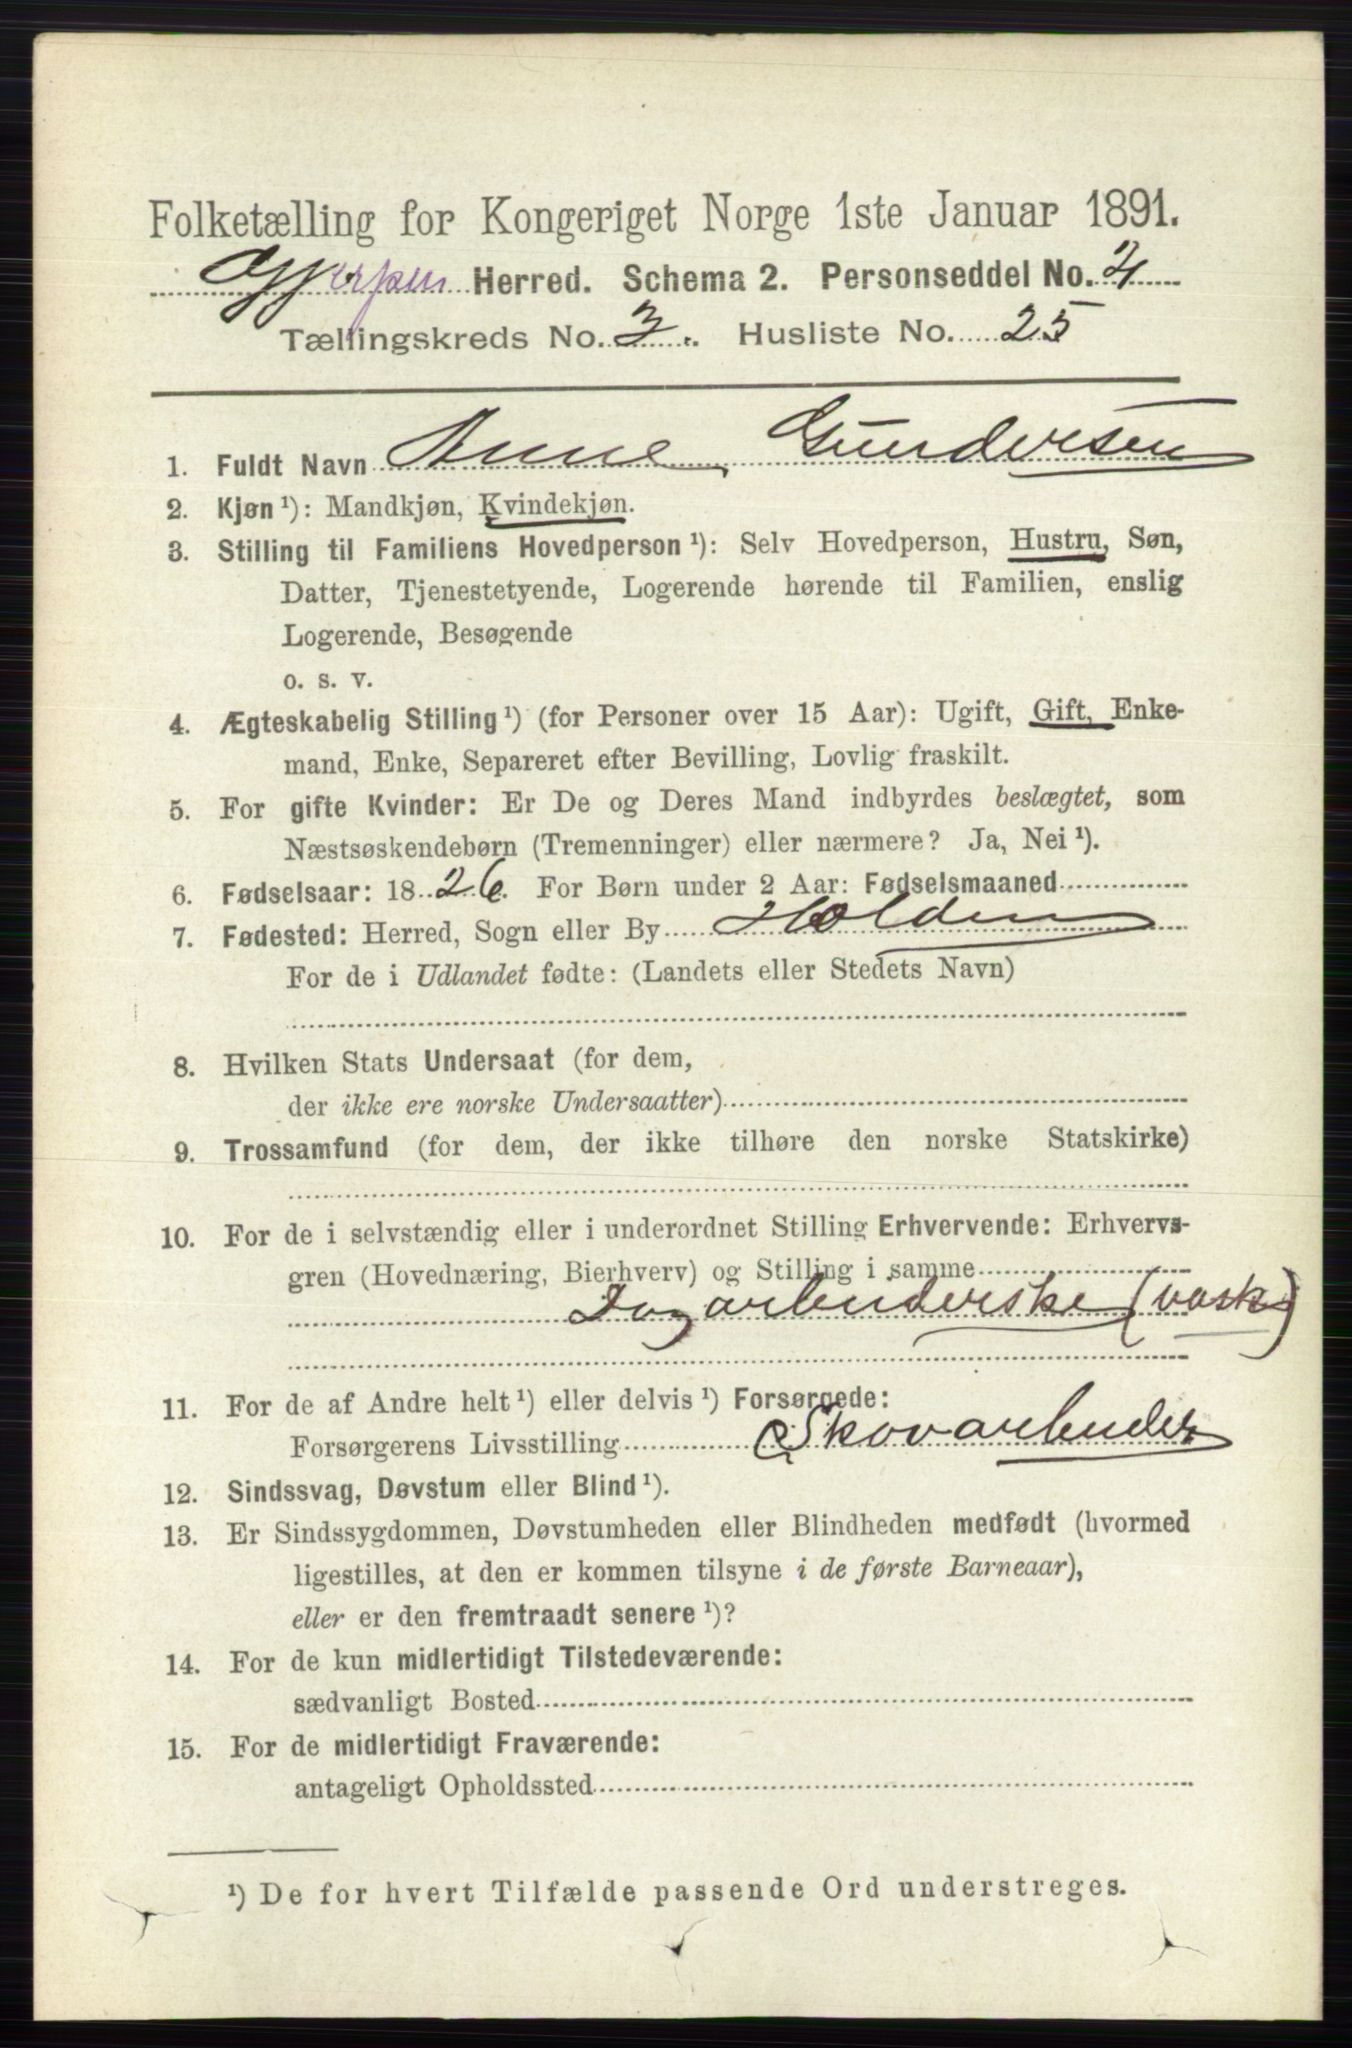 Folketælling for Kongeriget Norge 1ste Januar 1891.
Gjerpen Herred. Schema 2. Personseddel No. 4
Tællingskreds No. 3. Husliste No. 25
1. Fuldt Navn Anne Gundersen
2. Kjøn ¹): Mandkjøn, Kvindekjøn.
3. Stilling til Familiens Hovedperson ¹): Selv Hovedperson, Hustru, Søn,
Datter, Tjenestetyende, Logerende hørende til Familien, enslig
Logerende, Besøgende
o. s. v.
4. Ægteskabelig Stilling ¹) (for Personer over 15 Aar): Ugift, Gift, Enke-
mand, Enke, Separeret efter Bevilling, Lovlig fraskilt.
5. For gifte Kvinder: Er De og Deres Mand indbyrdes beslægtet, som
Næstsøskendebørn (Tremenninger) eller nærmere? Ja, Nei ¹).
6. Fødselsaar: 1826. For Børn under 2 Aar: Fødselsmaaned
7. Fødested: Herred, Sogn eller By Holden
For de i Udlandet fødte: (Landets eller Stedets Navn)
8. Hvilken Stats Undersaat (for dem,
der ikke ere norske Undersaatter)
9. Trossamfund (for dem, der ikke tilhøre den norske Statskirke)
10. For de i selvstændig eller i underordnet Stilling Erhvervende: Erhvervs-
gren (Hovednæring, Bierhverv) og Stilling i samme
Dagarbeiderske (vask)
11. For de af Andre helt ¹) eller delvis ¹) Forsørgede:
Forsørgerens Livsstilling Skovarbeider
12. Sindssvag, Døvstum eller Blind ¹).
13. Er Sindssygdommen, Døvstumheden eller Blindheden medfødt (hvormed
ligestilles, at den er kommen tilsyne i de første Barneaar),
eller er den fremtraadt senere ¹)?
14. For de kun midlertidigt Tilstedeværende:
sædvanligt Bosted
15. For de midlertidigt Fraværende:
antageligt Opholdssted
¹) De for hvert Tilfælde passende Ord understreges.